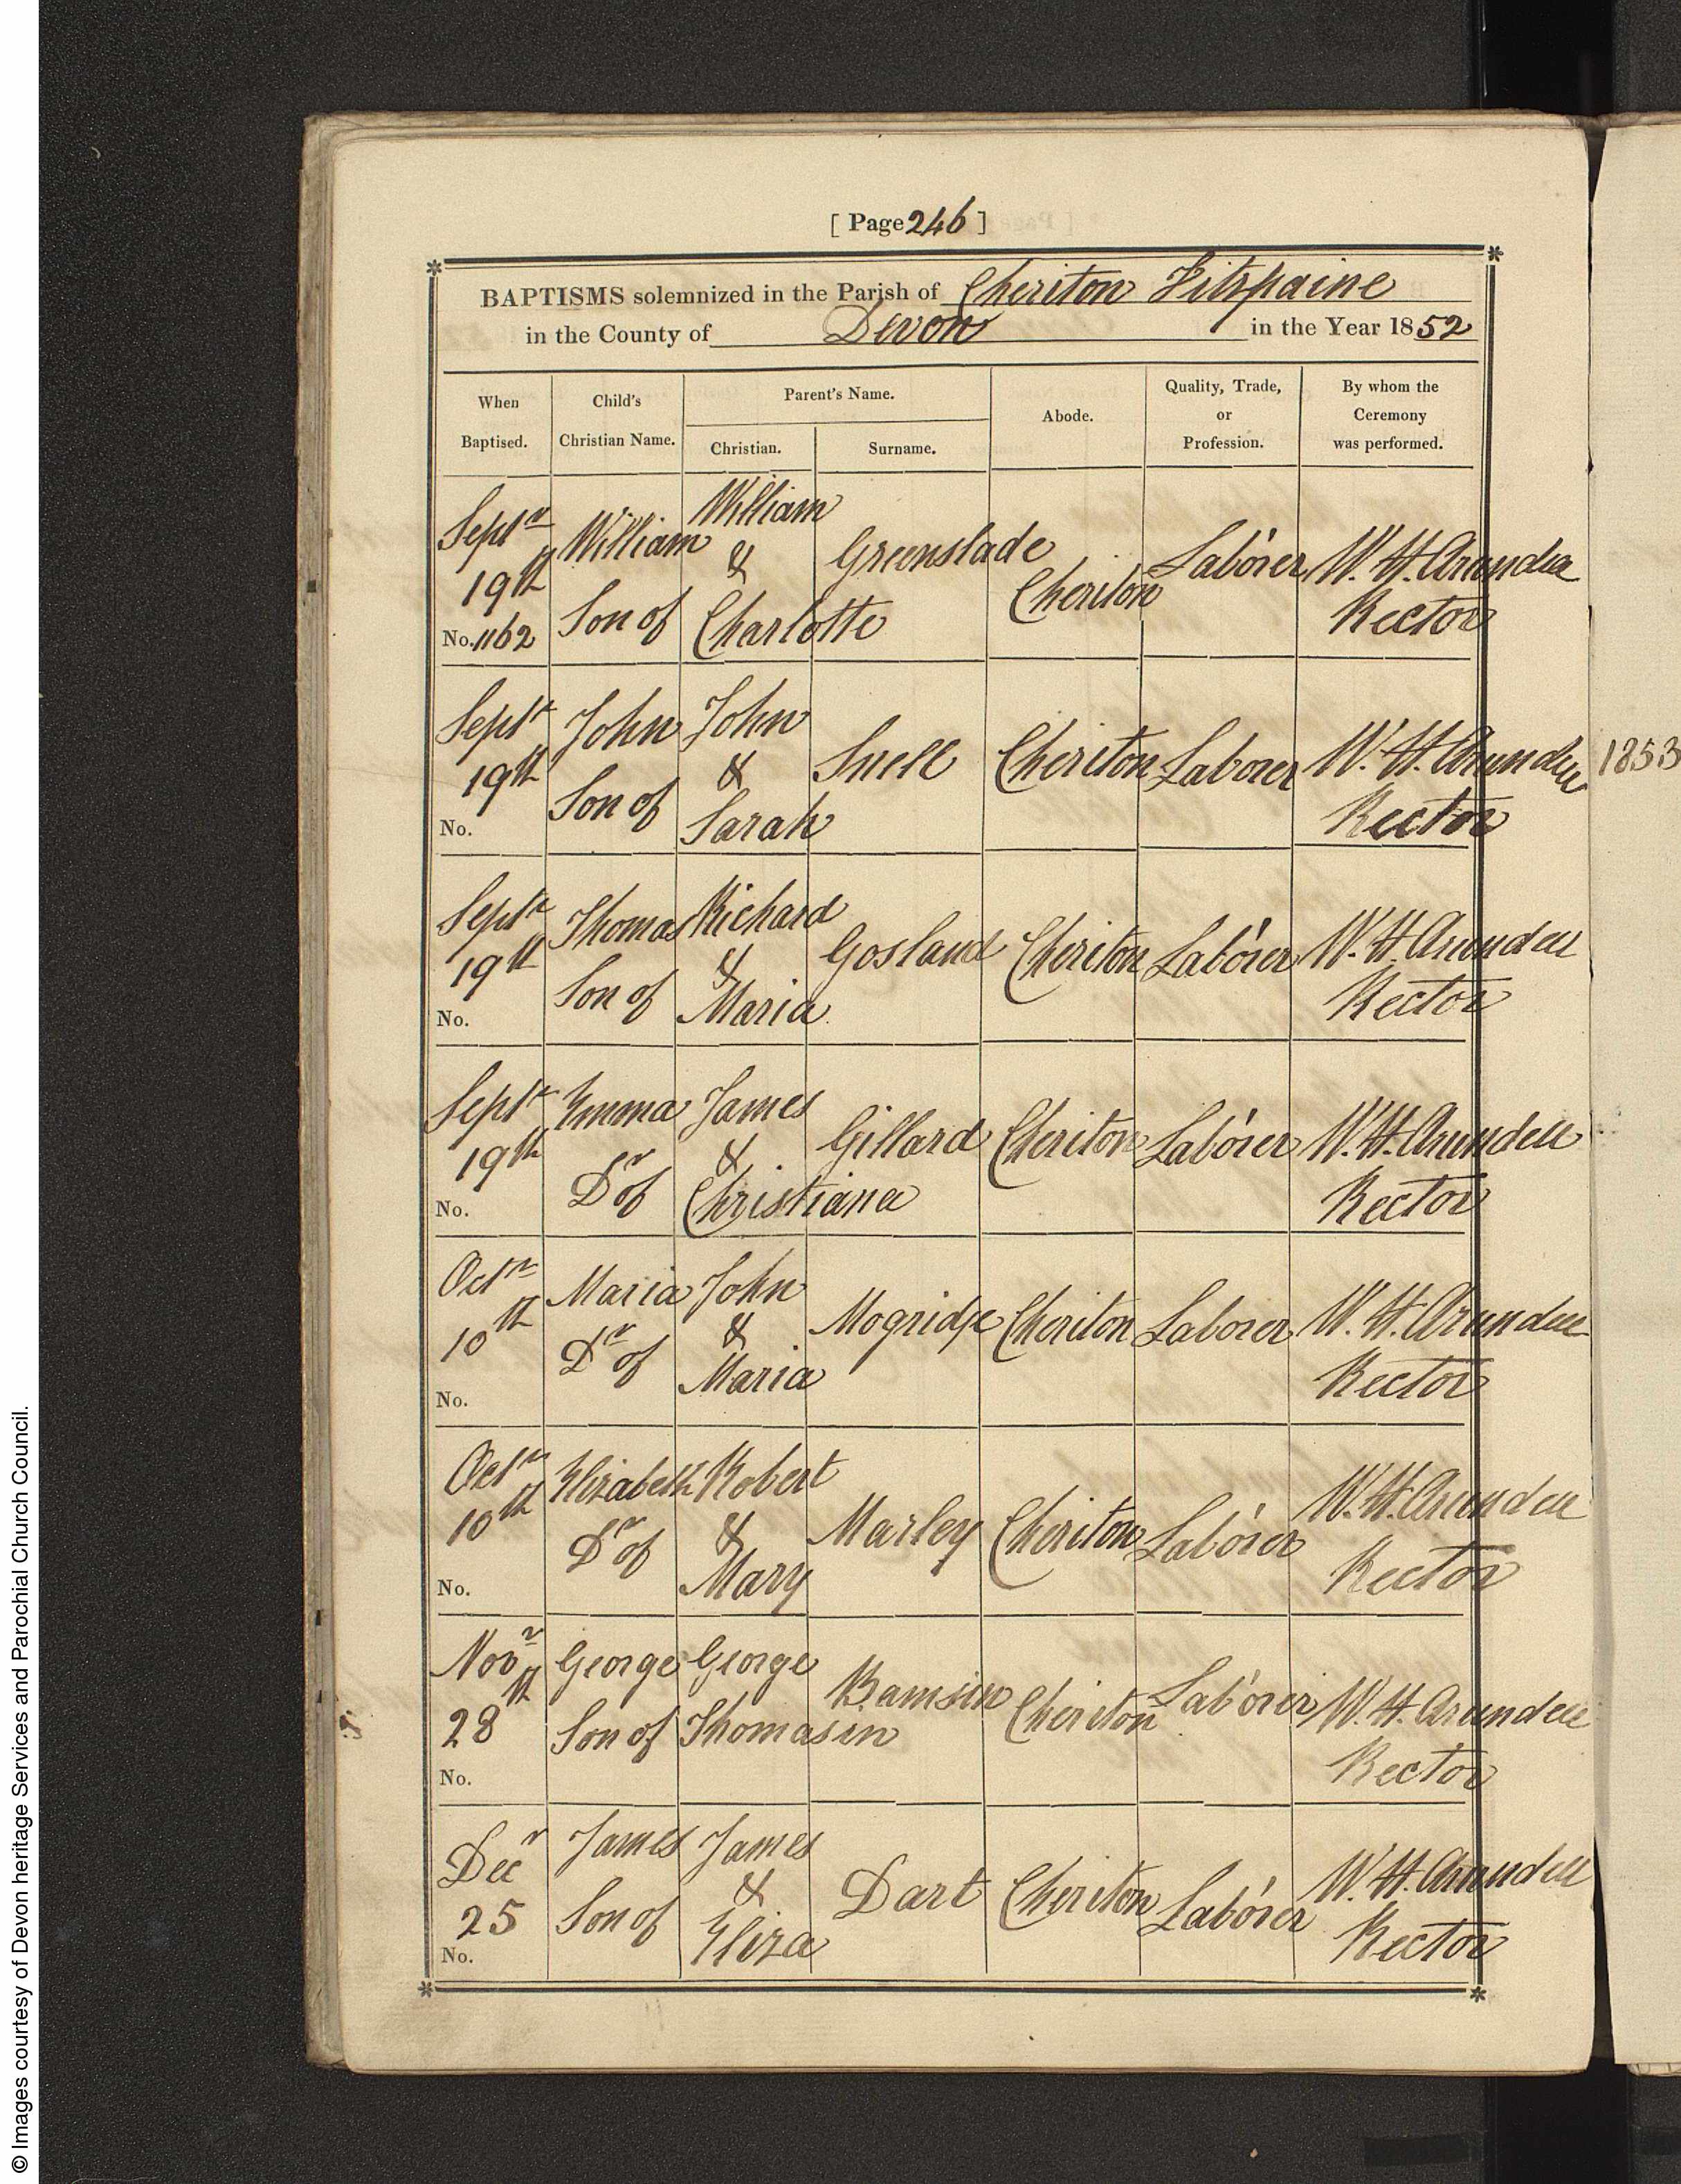 [ Page 246 ]
BAPTISMS solemnized in the Parish of Cheriton Fitzpaine
in the County of Devon in the Year 1852
When Baptised.
Child's Christian Name.
Parent's Name.
Christian.
Surname.
Abode.
Quality, Trade, or Profession.
By whom the Ceremony was performed.
Septr 19th No. 1162
William Son of
William & Charlotte
Greenslade
Cheriton
Laborer
W. H. Arundell Rector
Septr 19th No.
John Son of
John & Sarah
Snell
Cheriton
Laborer
W. H. Arundell Rector
1853
Septr 19th No.
Thomas Son of
Richard & Maria
Gosland
Cheriton
Laborer
W. H. Arundell Rector
Septr 19th No.
Emma Dr of
James & Christiana
Gillard
Cheriton
Laborer
W. H. Arundell Rector
Octr 10th No.
Maria Dr of
John & Maria
Mogridge
Cheriton
Laborer
W. H. Arundell Rector
Octr 10th No.
Elizabeth Dr of
Robert & Mary
Marley
Cheriton
Laborer
W. H. Arundell Rector
Novr 28th No.
George Son of
George Thomasin
Bamsin
Cheriton
Laborer
W. H. Arundell Rector
Decr 25 No.
James Son of
James & Eliza
Dart
Cheriton
Laborer
W. H. Arundell Rector
© Images courtesy of Devon heritage Services and Parochial Church Council.